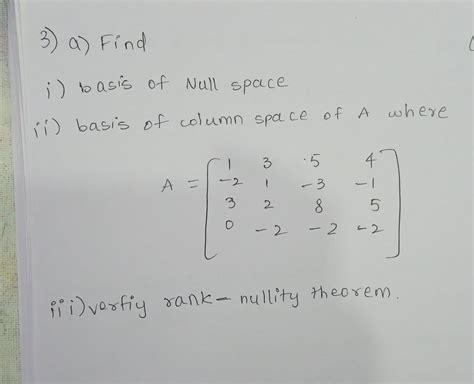 3) a) Find
i) basis of Null space
ii) basis of column space of A where
1 3 .5 4
A = -2 1 -3 -1
3 2 8 5
0 -2 -2 -2
iii) verfiy rank - nullity theorem.